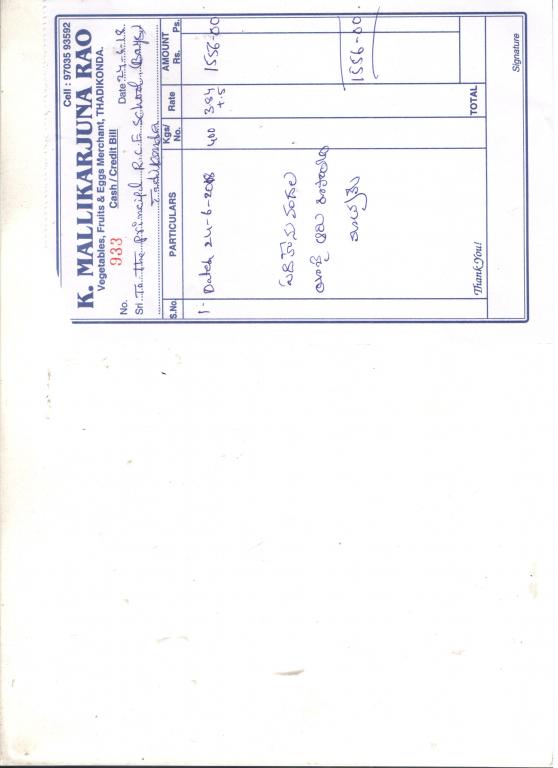 Cell : 97035 93592
K. MALLIKARJUNA RAO
Vegetables, Fruits & Eggs Merchant, THADIKONDA.
Cash / Credit Bill
No. 933 Date
Sri. To the principal R.C.E School, (Boys)
Tadikonda
S.No. PARTICULARS Kgs/ No. Rate AMOUNT Rs. Ps.
1- Dated 24-6-2018 400 3.84 1556-00
+.5
1556-00
Thank You! TOTAL
Signature